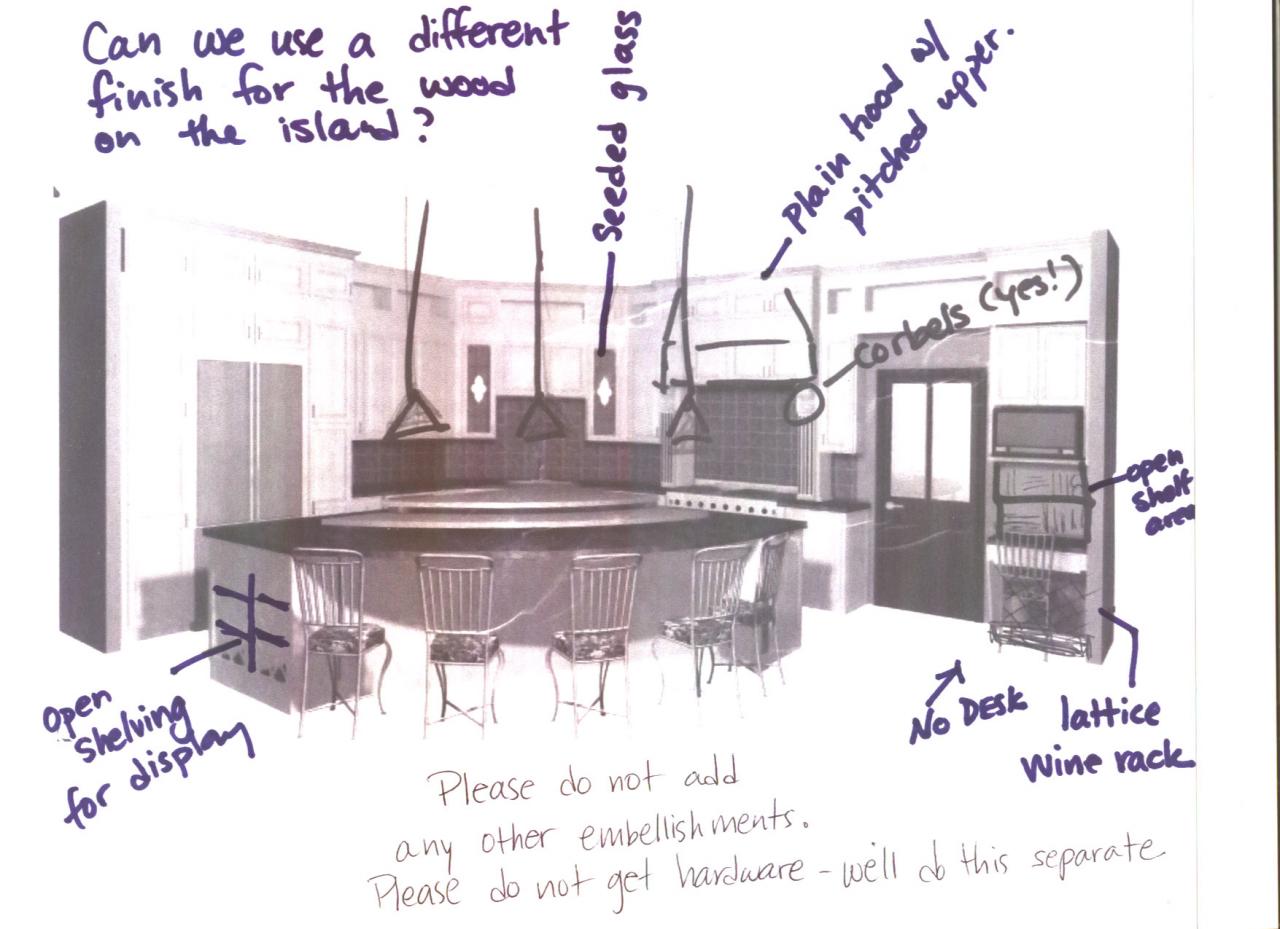 Can we use a different
finish for the wood
on the island?
Seeded glass
Plain hood w/
pitched upper.
corbels (yes!)
open
shelf
area
open
shelving
for display
No DESK
lattice
wine rack
Please do not add
any other embellishments.
Please do not get hardware - we'll do this separate